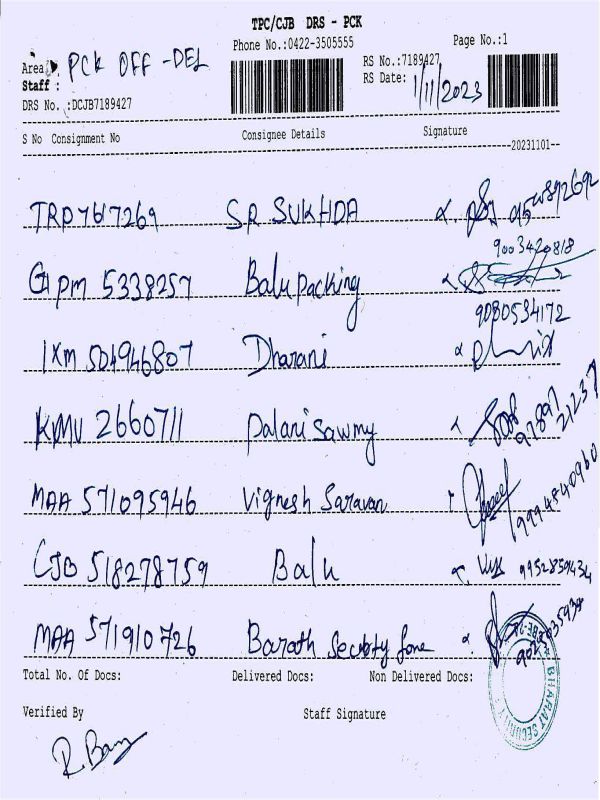 TPC/CJB DRS - PCK
Phone No.:0422-3505555 Page No.:1
Area : PCK OFF -DEL RS No.:7189427
Staff : RS Date: 1/11/2023
DRS No. :DCJB7189427
S No Consignment No Consignee Details Signature
20231101
SR SUKHDA
9003420818
GPM 5338257 Balu packing
9080534172
IXM 504946807 Dharani
KMU 2660711 Palani sawmy 97891 21237
MAA 571095946 Vignesh Saravan 9994840960
CJB 518278759 Balu 9952859434
MAA 571910726 Barath
BHARAT SECURITY
Total No. Of Docs: Delivered Docs: Non Delivered Docs:
Verified By Staff Signature